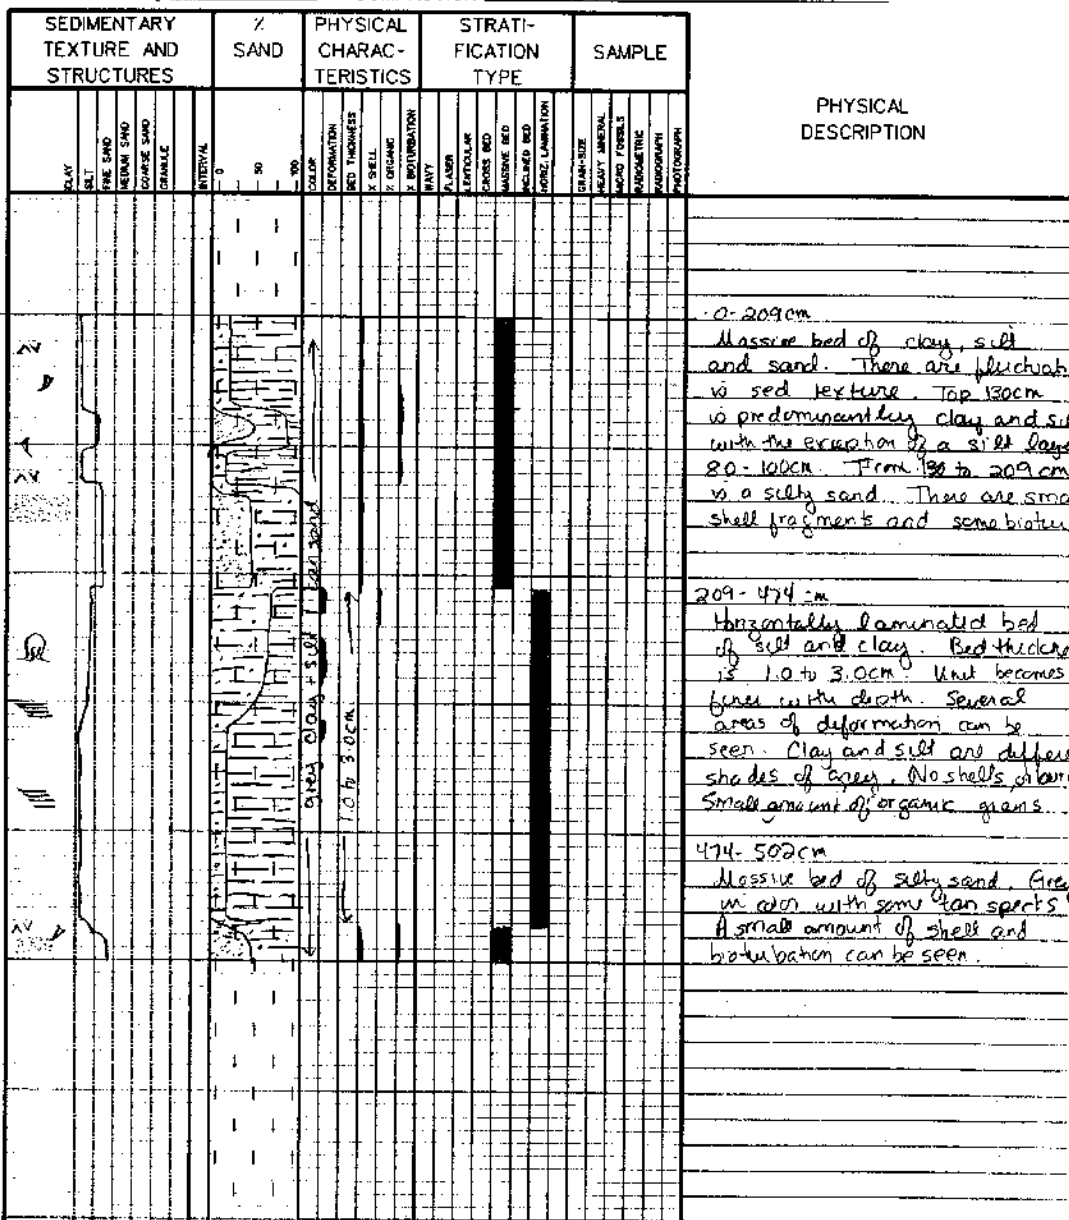 SEDIMENTARY TEXTURE AND STRUCTURES
% SAND
PHYSICAL CHARAC- TERISTICS
STRATI- FICATION TYPE
SAMPLE
PHYSICAL DESCRIPTION
CLAY
SILT
FINE SAND
MEDIUM SAND
COARSE SAND
GRANULE
INTERVAL
0
50
100
COLOR
DEFORMATION
BED THICKNESS
% SHELL
% ORGANIC
% BIOTURBATION
WAVY
FLASER
LENTICULAR
CROSS BED
MASSIVE BED
INCLINED BED
HORIZ. LAMINATION
GRAIN-SIZE
HEAVY MINERAL
MICRO FOSSILS
RADIOMETRIC
RADIOGRAPH
PHOTOGRAPH
grey clay + silt tan sand
1.0 to 3.0cm
0-209cm
Massive bed of clay, silt
and sand. There are fluctuati
is sed texture. Top 130cm
is predominantly clay and sil
with the exception of a silt laye
80-100cm. From 130 to 209 cm
is a silty sand. There are sma
shell fragments and some biotu
209-474 cm
Horizontally laminated bed
of silt and clay. Bed thickne
is 1.0 to 3.0cm. Unit becomes
finer with depth. Several
areas of deformation can be
seen. Clay and silt are differe
shades of grey. No shells, or
Small amount of organic grains.
474-502cm
Massive bed of silty sand. Grey
in color with some "tan specks"
A small amount of shell and
bioturbation can be seen.